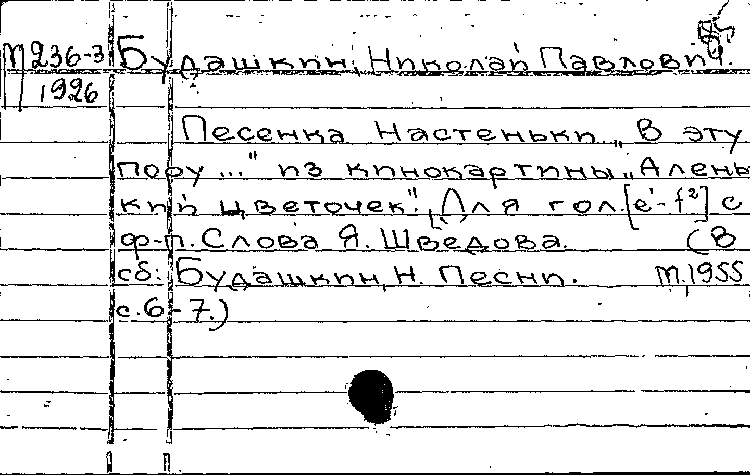 М 236-3
1926
Будашкин, Николай Павлович.
Песенка Настеньки „В эту
пору..." из кинокартины „Алень
кий цветочек". Для гол. [e¹-f²] с
ф-п. Слова Я. Шведова. (В
сб: Будашкин, Н. Песни. М, 1955
с. 6-7.)